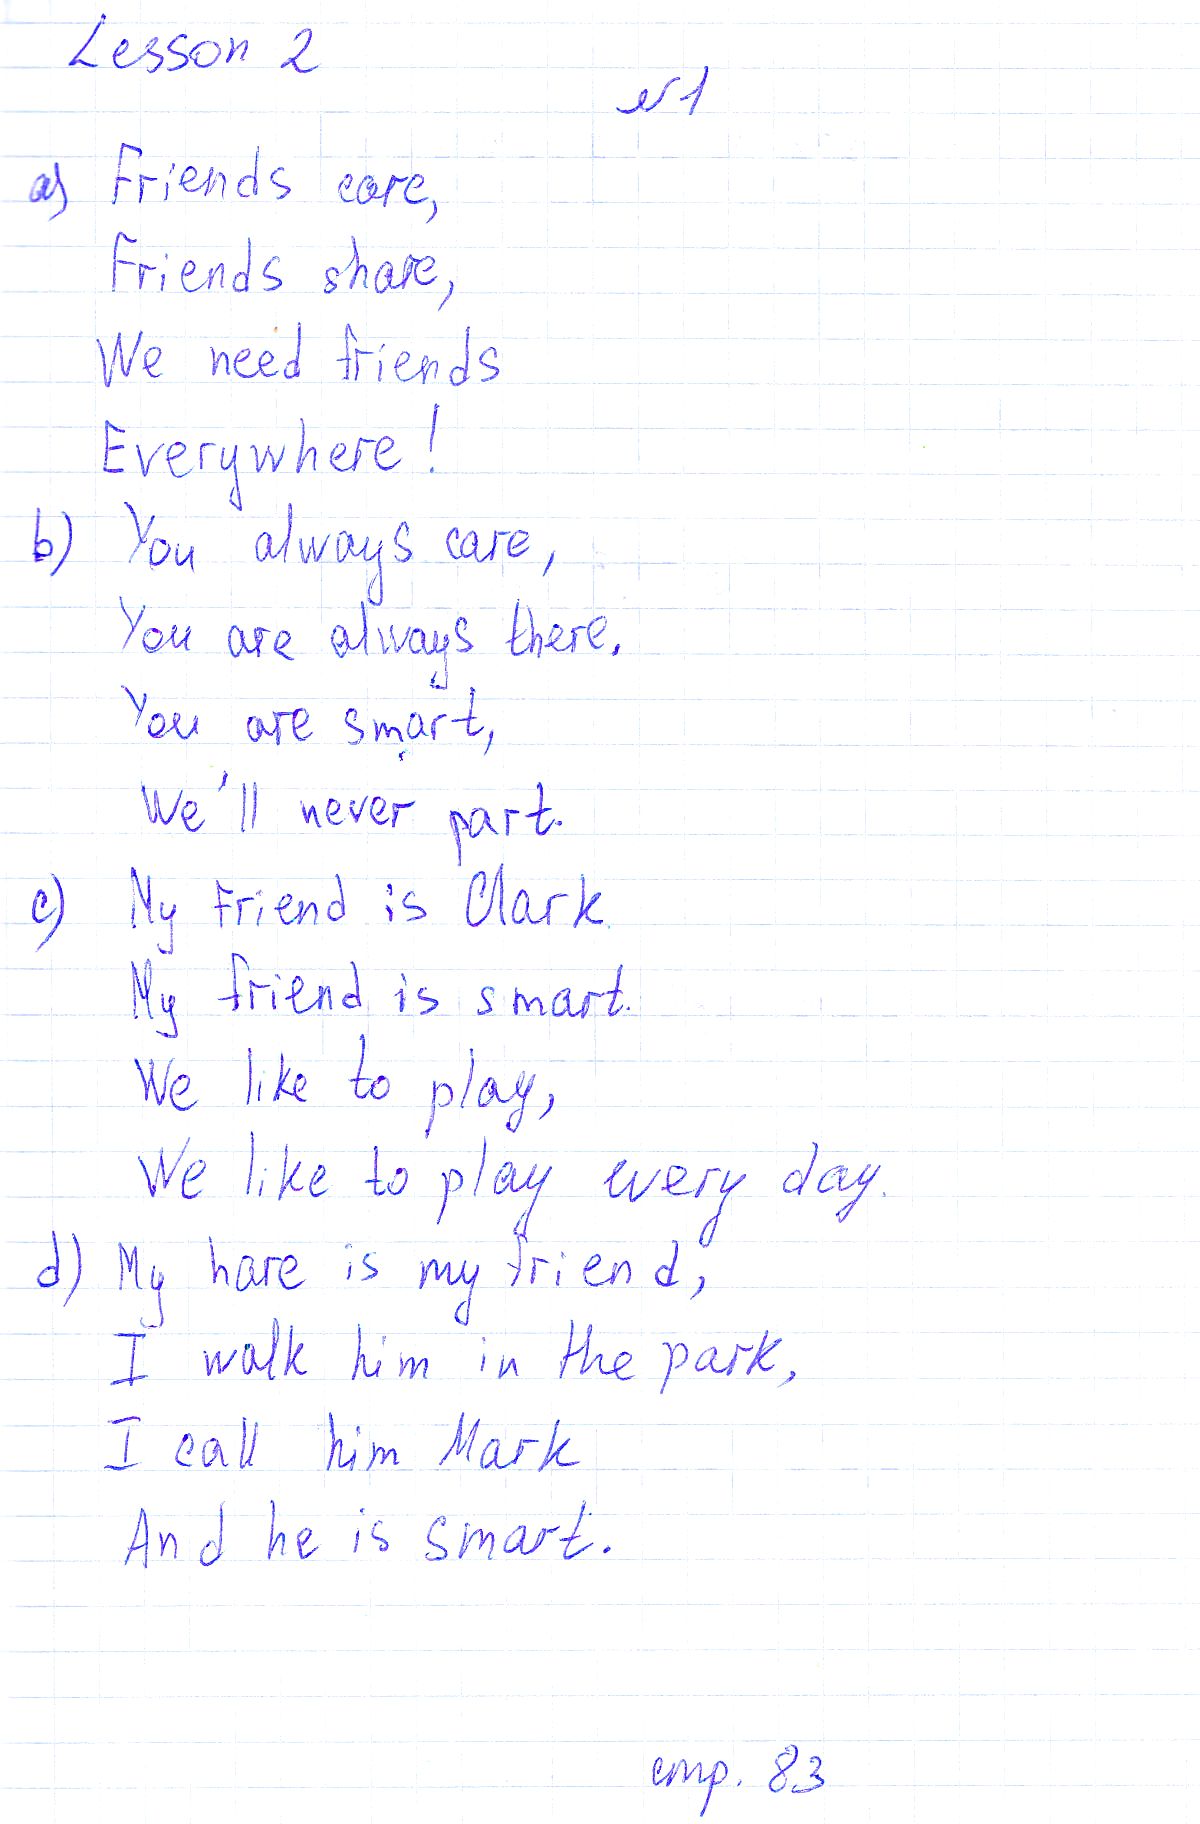 Lesson 2
№1
a) Friends care,
Friends share,
We need friends
Everywhere!
b) You always care,
You are always there.
You are smart,
We'll never part.
c) My friend is Clark.
My friend is smart.
We like to play,
We like to play every day.
d) My hare is my friend,
I walk him in the park,
I call him Mark
And he is smart.
стр. 83